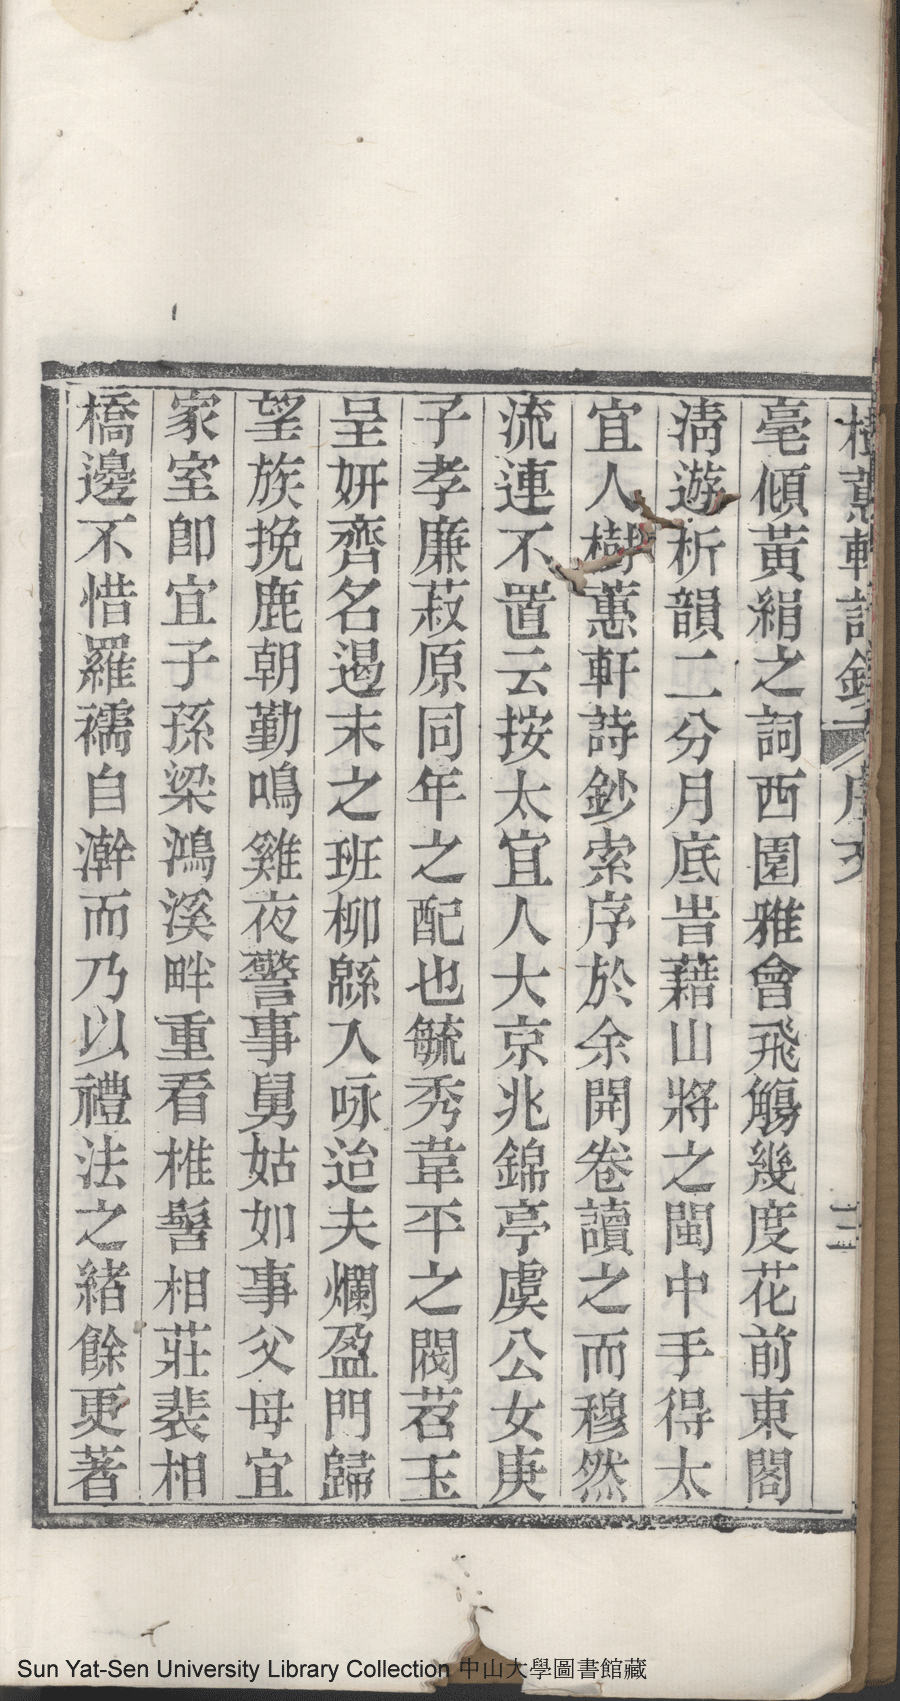 樹蕙軒詩鈔 序文 三
毫傾黃絹之詞西園雅會飛觴幾度花前東閣
淸遊析韻二分月底旹藉山將之閩中手得太
宜人樹蕙軒詩鈔索序於余開卷讀之而穆然
流連不置云按太宜人大京兆錦亭虞公女庚
子孝廉菽原同年之配也毓秀韋平之閥苕玉
呈妍齊名遏末之班柳緜入咏迨夫爛盈門歸
望族挽鹿朝勤鳴雞夜警事舅姑如事父母宜
家室卽宜子孫梁鴻溪畔重看椎髻相莊裴相
橋邊不惜羅襦自澣而乃以禮法之緒餘更著
Sun Yat-Sen University Library Collection 中山大學圖書館藏